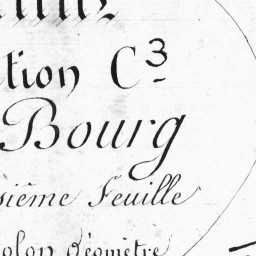 tion C³
Bourg
sième Feuille
olon Géomètre